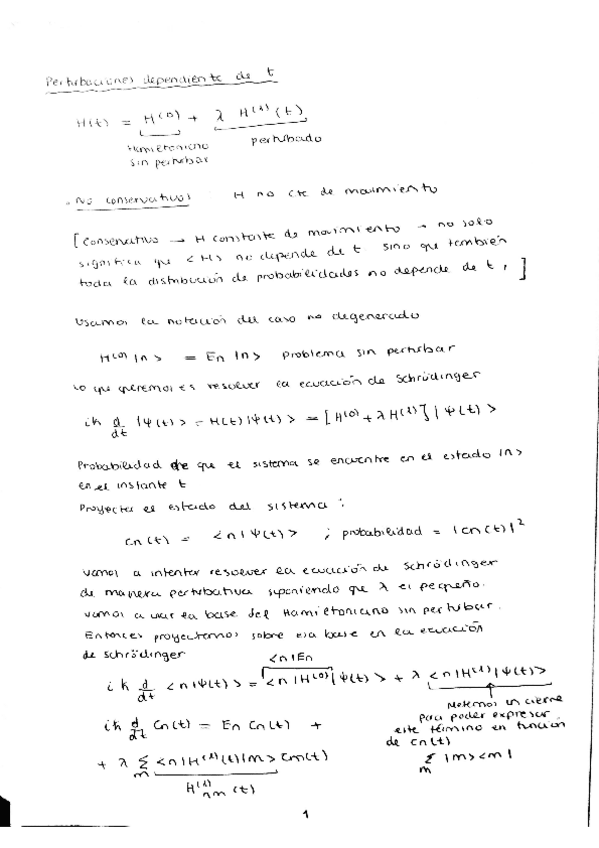 Perturbaciones dependiente de t
H(t) = H^(0) + λ H^(1)(t)
Hamiltoniano sin perturbar
perturbado
. No conservativos H no cte de movimiento
[Conservativo → H constante de movimiento → no solo
significa que <H> no depende de t sino que también
toda la distribución de probabilidades no depende de t.]
Usamos la notación del caso no degenerado
H^(0) |n> = En |n> problema sin perturbar
Lo que queremos es resolver la ecuación de Schrödinger
iħ d/dt |Ψ(t)> = H(t) |Ψ(t)> = [H^(0) + λ H^(1)] |Ψ(t)>
Probabilidad de que el sistema se encuentre en el estado |n>
en el instante t
Proyecta el estado del sistema :
Cn(t) = <n|Ψ(t)> ; probabilidad = |Cn(t)|²
vamos a intentar resolver la ecuación de Schrödinger
de manera perturbativa suponiendo que λ es pequeño.
vamos a usar la base del Hamiltoniano sin perturbar.
Entonces proyectemos sobre esa base en la ecuación
de schrödinger
<n|En
iħ d/dt <n|Ψ(t)> = <n|H^(0)|Ψ(t)> + λ <n|H^(1)|Ψ(t)>
Metemos un cierre
para poder expresar
este término en función
de cn(t)
Σm |m><m|
iħ d/dt Cn(t) = En Cn(t) +
+ λ Σm <n|H^(1)(t)|m> Cm(t)
H^(1)nm (t)
1